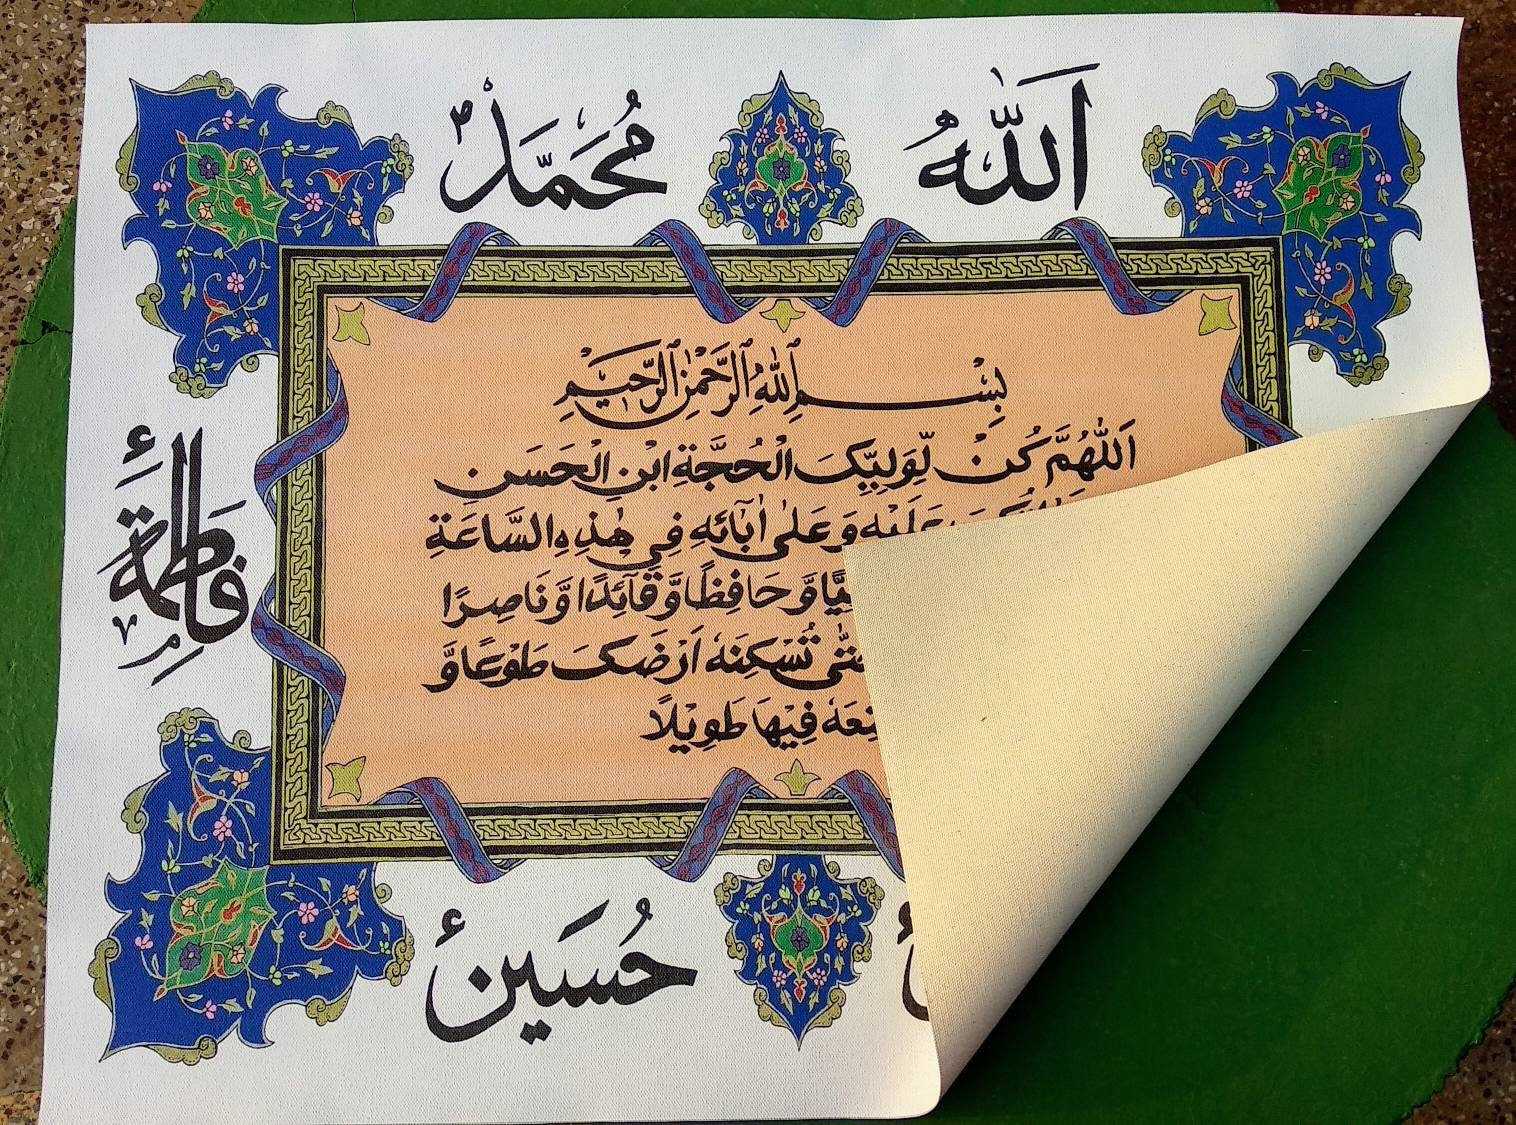 اَللّٰهُ
مُحَمَّدٌ ؐ
بِسْمِ اللّٰهِ الرَّحْمٰنِ الرَّحِيْمِ
اَللّٰهُمَّ كُنْ لِّوَلِيِّكَ الْحُجَّةِ ابْنِ الْحَسَنِ
عَلَيْهِ وَعَلٰى اٰبَآئِهِ فِيْ هٰذِهِ السَّاعَةِ
وَّحَافِظًا وَّقَآئِدًا وَّنَاصِرًا
تُسْكِنَهٗ اَرْضَكَ طَوْعًا وَّ
فِيْهَا طَوِيْلًا
فَاطِمَة
حُسَين